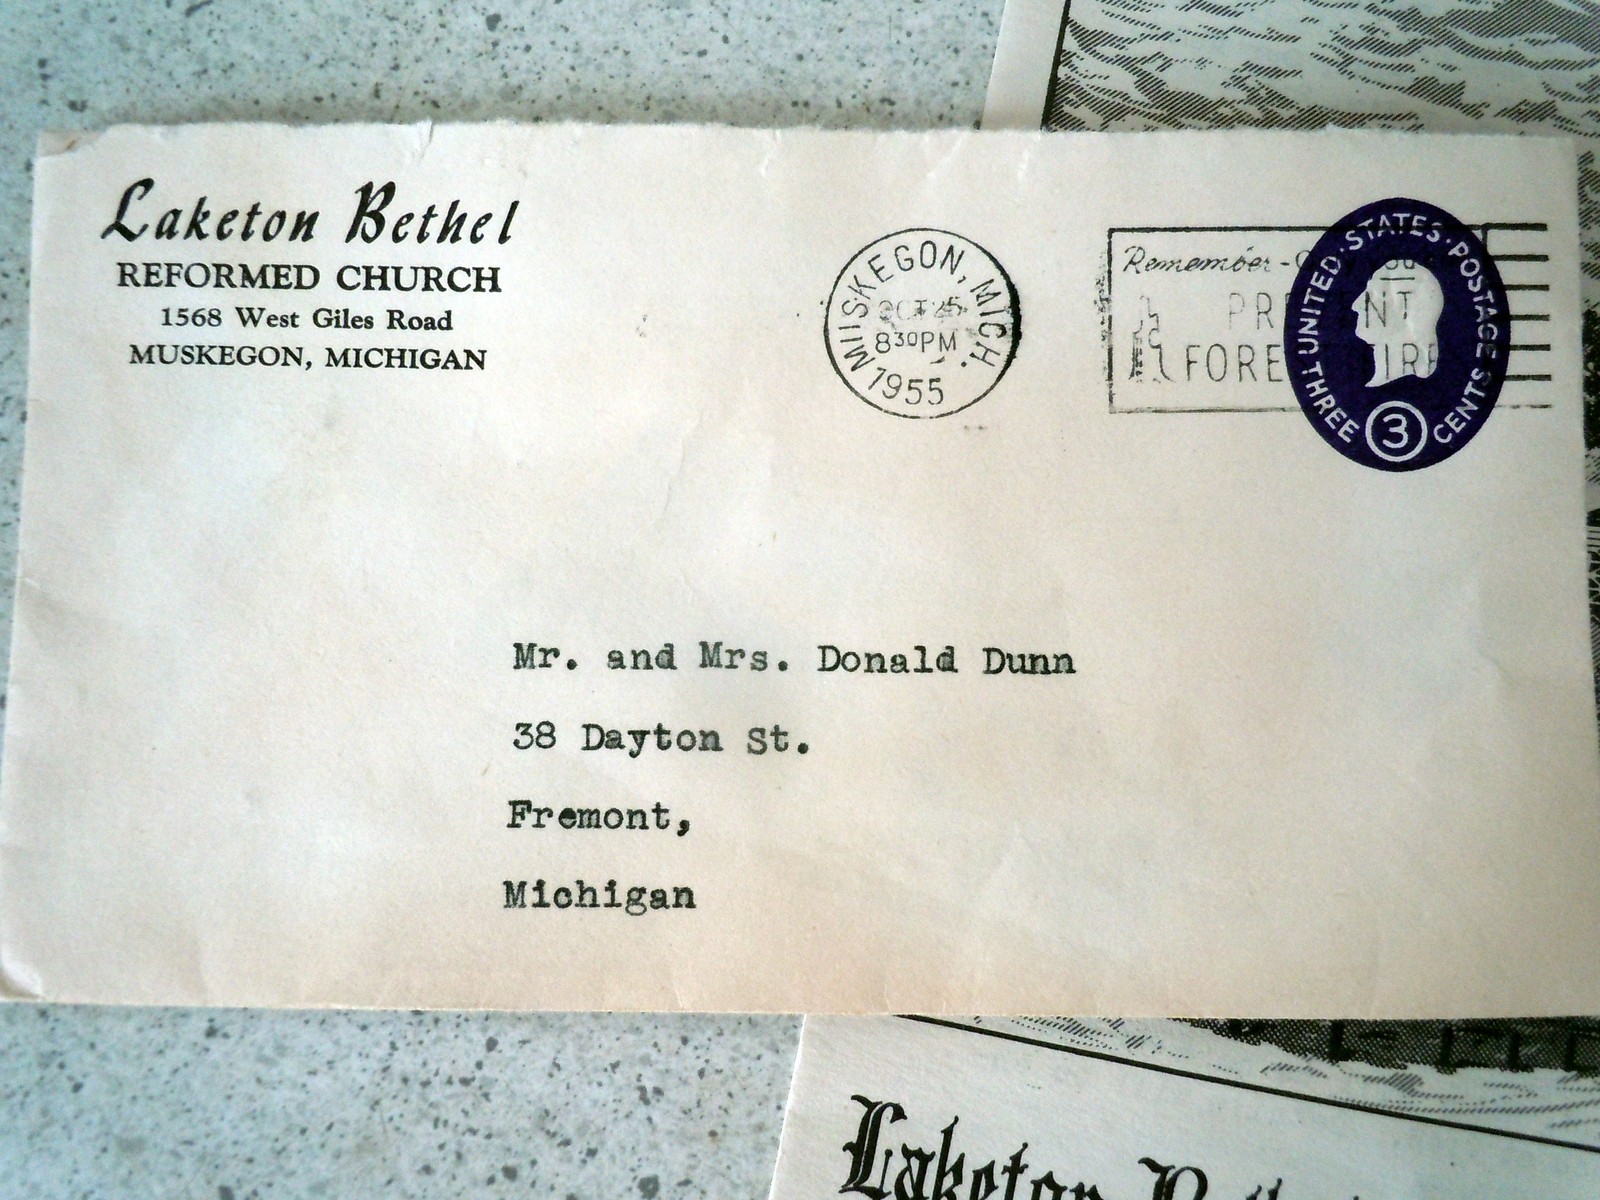 Laketon Bethel
REFORMED CHURCH
1568 West Giles Road
MUSKEGON, MICHIGAN
MUSKEGON, MICH.
OCT 25
8 30 PM
1955
Remember-Only You
PREVENT
FOREST FIRES
UNITED·STATES·POSTAGE
THREE 3 CENTS
Mr. and Mrs. Donald Dunn
38 Dayton St.
Fremont,
Michigan
Laketon